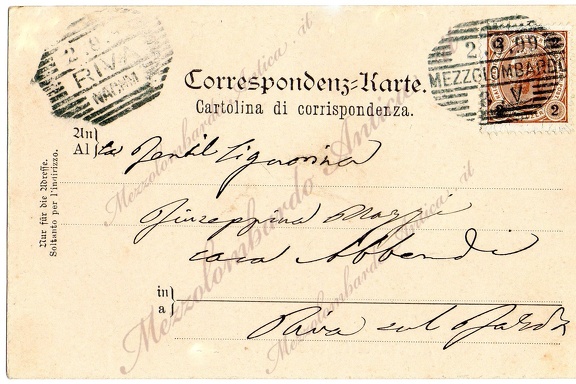 2.9.
RIVA
NACHM
2.9.99
MEZZOLOMBARDO
V
2 2
2 2
Correspondenz-Karte.
Cartolina di corrispondenza.
An
Al
La Gentil Signorina
Giuseppina
casa
in
a
Riva sul Garda
Nur für die Adresse.
Soltanto per l'indirizzo.
Mezzolombardo Antica .it
Mezzolombardo Antica .it
Mezzolombardo Antica .it